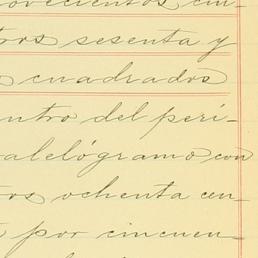 ovecientos cin-
tros sesenta y
s cuadrados
entro del perí-
alelógramo con
tros ochenta cen-
por cincuen-